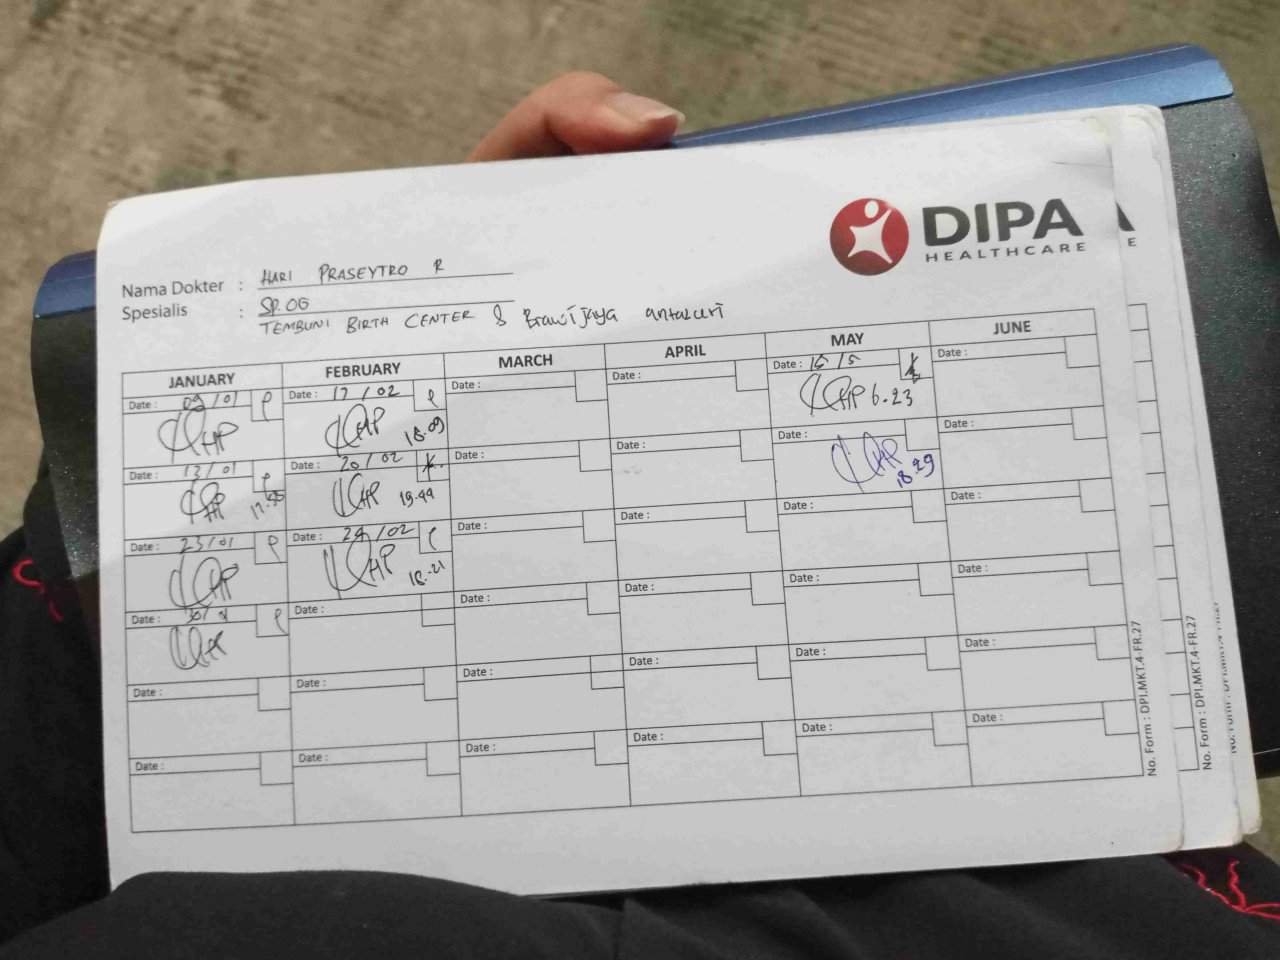 DIPA
HEALTHCARE
Nama Dokter : HARI PRASEYTRO R
Spesialis : SP.OG
TEMBUNI BIRTH CENTER & Brawijaya antasari
JANUARY FEBRUARY MARCH APRIL MAY JUNE
Date : 09/01 Date : 17/02 Date : Date : Date : 16/5 Date :
18.09 6.23
Date : 13/01 Date : 20/02 Date : Date : Date : Date :
19.44 18.29
Date : 23/01 Date : 24/02 Date : Date : Date : Date :
18.21
Date : 30/ Date : Date : Date : Date : Date :
Date : Date : Date : Date : Date : Date :
Date : Date : Date : Date : Date : Date :
No. Form : DPI.MKT.4-FR.27
No. Form : DPI.MKT.4-FR.27